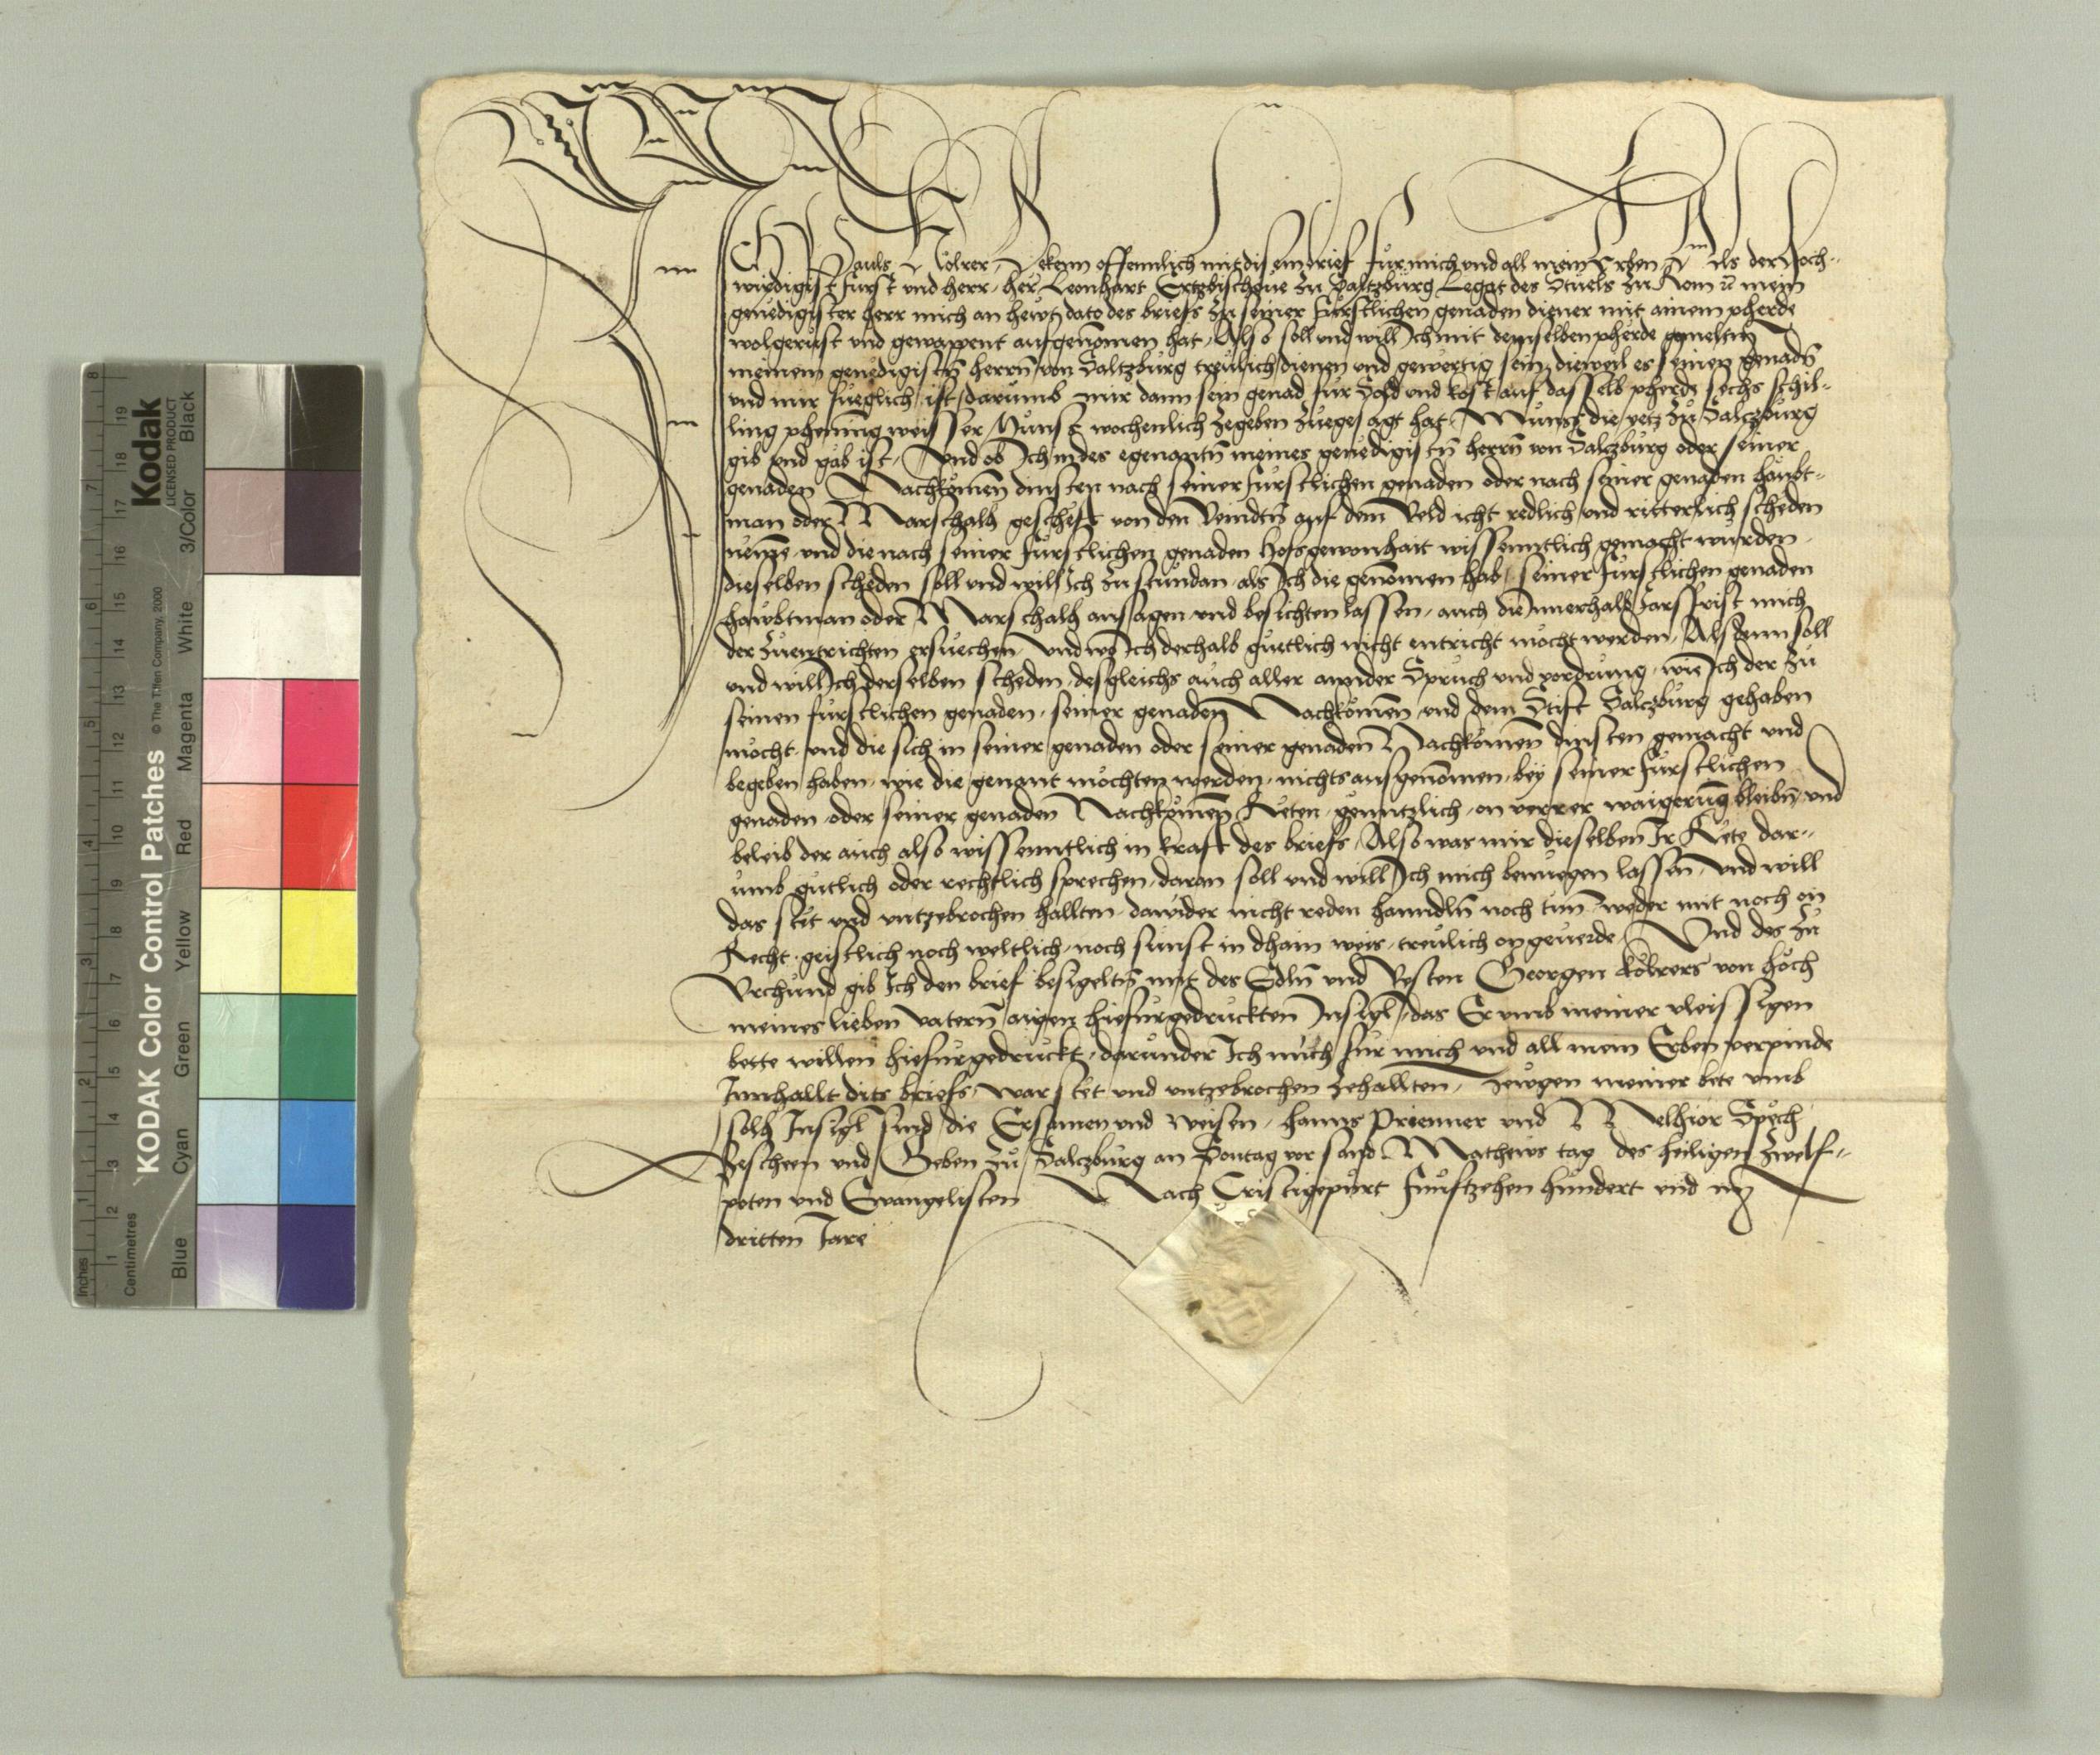 Ich Pauls Kölrer, Bekenn offennlich mit disem brief für mich und all mein Erben, Als der Hoch-
wirdigist fürst und herr, her Leonhart Ertzbischoue zu Saltzburg Legat des Stuels zu Rom ꝛc mein
genedigister herr mich an hewt dato des briefs zu seiner fürstlichen genaden diener mit ainem pherde
wolgerüst und gewappent aufgenomen hat, Also soll und will Ich mit demselben pherde gemeltm
meinem genedigistn̄ herrn̄ von Saltzburg treulich dienen und gewertig sein, dieweil es seinen genadn̄
und mir füeglich ist, darumb mir dann sein genad für Sold und kost auf dasselb pherdt sechs schil-
ling phening weisser Münss wochenlich zegeben zuegesagt hat, Münss die yetz zu Salczburg
gib und gab ist, Und ob Ich in des egenantn̄ meines genedigistn̄ herrn̄ von Salczburg oder seiner
genaden Nachkomen dinsten nach seiner fürstlichen genaden oder nach seiner genaden haubt-
man oder Marschalh gescheft von den Veindtn̄ auf dem Veld icht redlich und ritterlich scheden
neme, und die nach seiner fürstlichen genaden hofsgewonhait wissenntlich gemacht wurden,
dieselben scheden soll und will Ich zu stundan, als Ich die genomen hab, seiner fürstlichen genaden
hawbtman oder Marschalh ansagen und besichten lassen, auch die Innerhalb Jarsfrist mich
der zuentrichten ersuechen, Und wo Ich derhalb güetlich nicht entricht möcht werden, Alsdann soll
und will Ich derselben scheden, desgleichs auch aller annder Spruch und vordrung, wie Ich der zu
seinen fürstlichen genaden, seiner genaden Nachkomen, und dem Stift Salczburg gehaben
möcht, und die sich in seiner genaden oder seiner genaden Nachkomen dinsten gemacht und
begeben haben, wie die genant möchten werden, nichts ausgenomen, bey seiner fürstlichen
genaden oder seiner genaden Nachkomen Räten, genntzlich, on verrer waigerung bleibn̄, und
beleib der auch also wissenntlich in kraft des briefs, Also was mir dieselben Ir Räte dar-
umb gütlich oder rechtlich sprechen, daran soll und will Ich mich benuegen lassen, und will
das stät und vntzebrochen hallten, dawider nicht reden hanndln̄ noch tun, weder mit noch on
Recht, geistlich noch weltlich, noch sunst in dhain weis, treulich on geuerde, Und des zu
Vrchund gib Ich den brief besigeltn̄ mit des Edln̄ und Vesten Georgen Kölrers von Höch
meines lieben vatern̄ aigen hiefürgedruckten Insigl, das Er umb meiner vleissigen
bette willen hiefürgedruckt, darunder Ich mich für mich und all mein Erben verpinde
Innhallt dits briefs, war stät und vntzebrochen zehallten, Zewgen meiner bete umb
solh Insigl sind die Ersamen und weisen, Hanns Prienner und Melhior Späch
Bescheen und Geben zu Salczburg an Sontag vor sand Matheus tag des heiligen zwelf-
poten und Ewangelisten Nach Cristi gepurt funftzehen hundert und im
dritten Jare
KODAK Color Control Patches
© The Tiffen Company, 2000
Kodak
LICENSED PRODUCT
Inches
Centimetres
Blue Cyan Green Yellow Red Magenta White 3/Color Black